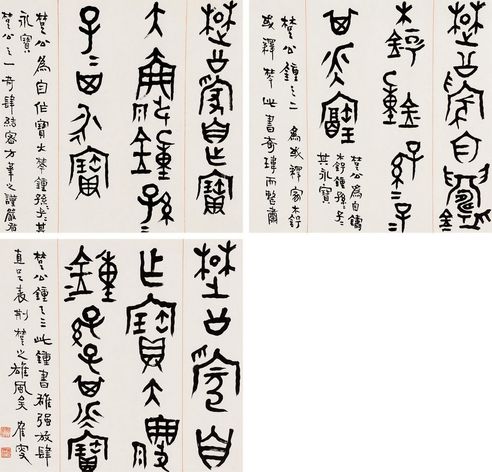 楚公為自乍寶
大鐘孫
子其永寶
楚公為自作寶大鐘孫子其
永寶
楚公鐘之一奇肆結密方筆之謹嚴者
楚公為自鑄
鐘孫子
其永寶
楚公為自鑄
鐘孫子
其永寶
楚公鐘之二 為或釋家
或釋 此書奇瑋而整肅
楚公為自
乍寶大
鐘孫子其永寶
楚公鐘之三此鐘書雄強放肆
直足表荊楚之雄風矣